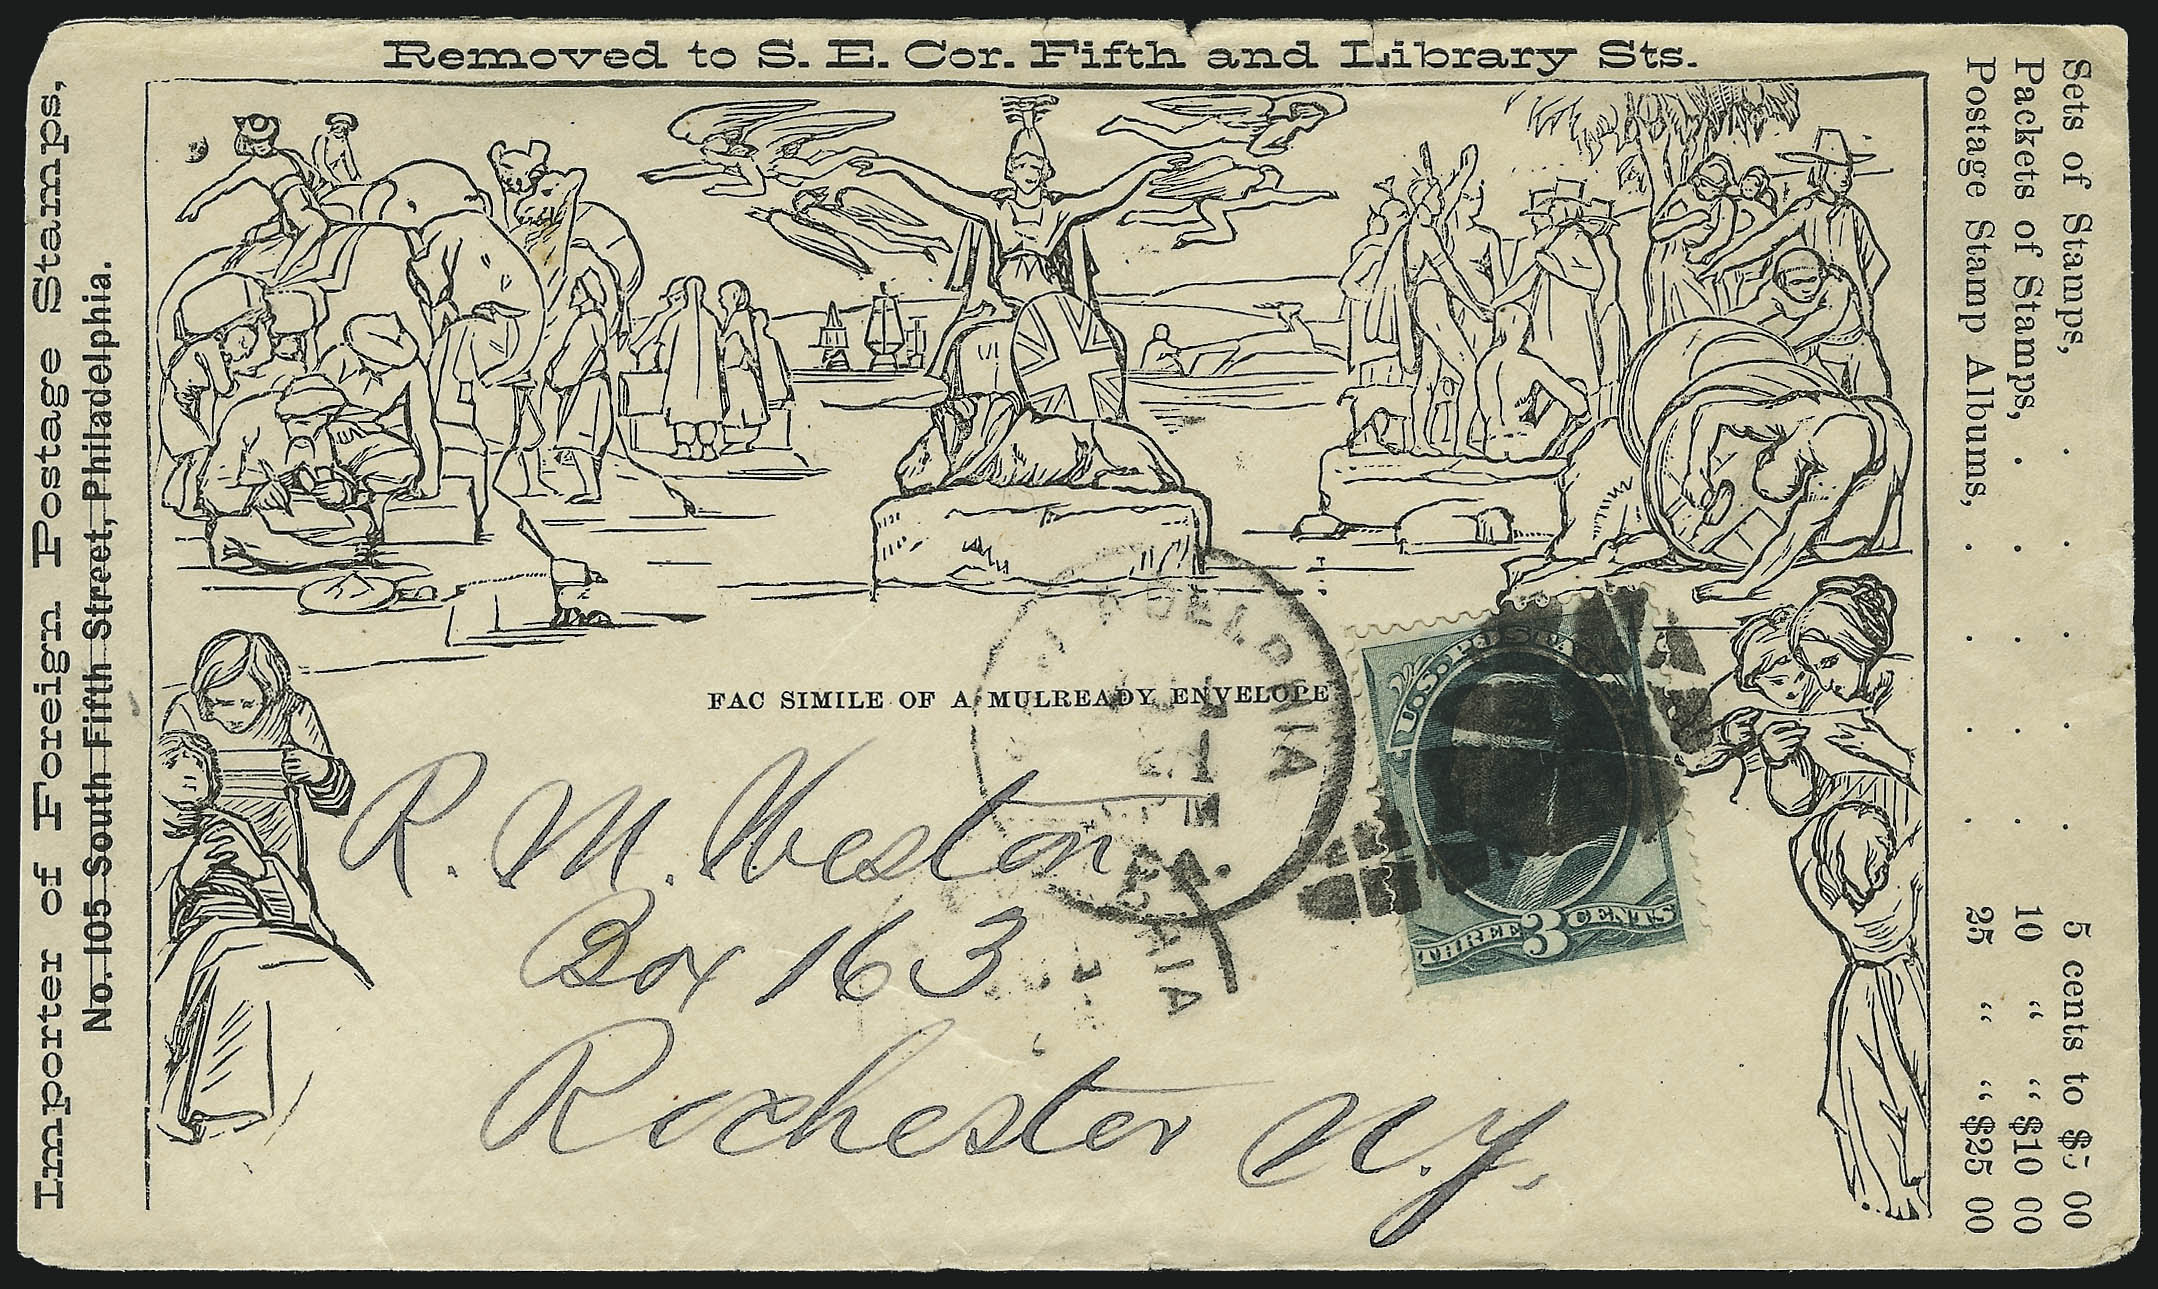 Removed to S. E. Cor. Fifth and Library Sts.
Importer of Foreign Postage Stamps,
No. 105 South Fifth Street, Philadelphia.
Sets of Stamps, . . . . . 5 cents to $5 00
Packets of Stamps, . . . . . 10 “ “ $10 00
Postage Stamp Albums, . . . . 25 “ “ $25 00
FAC SIMILE OF A MULREADY ENVELOPE
R. M. Weston
Box 163
Rochester N.Y.
U.S. POSTAGE
THREE 3 CENTS